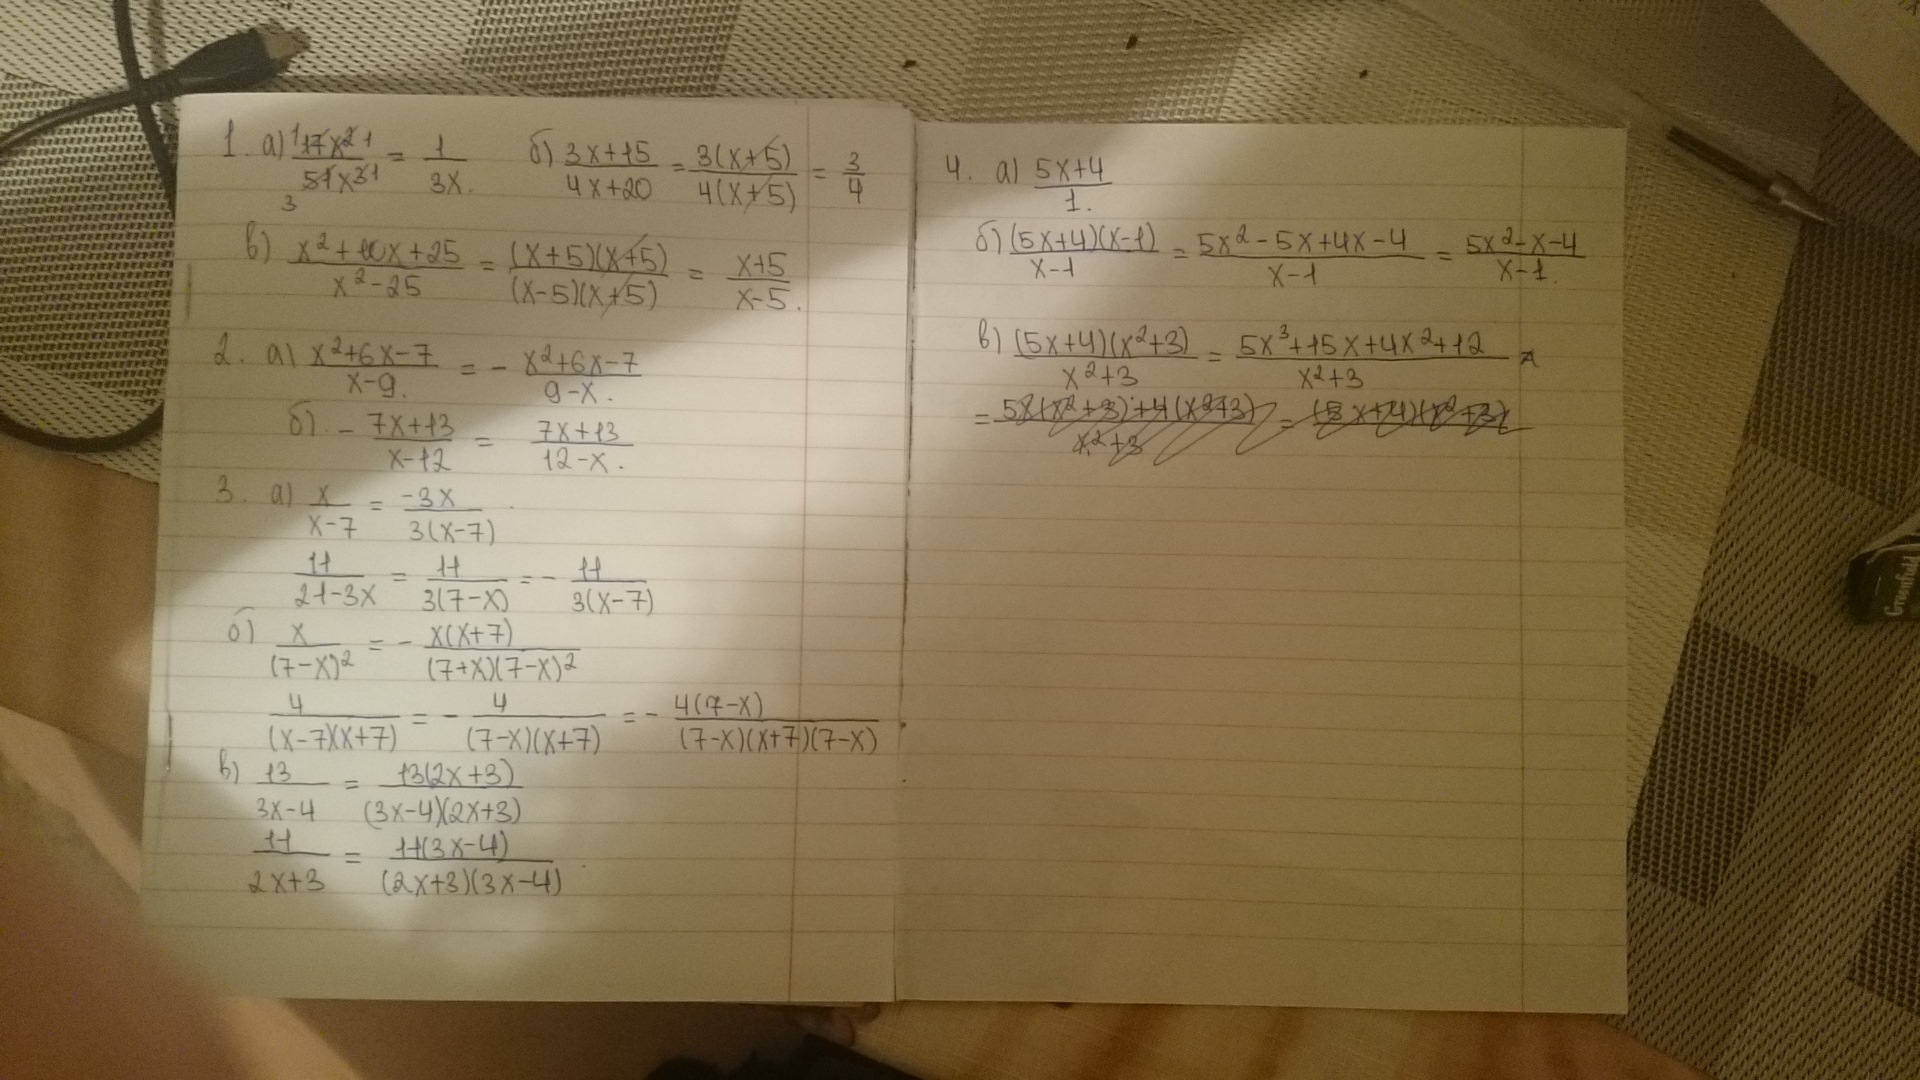 1. а) 17x²/51x³ = 1/3x. б) 3x+15/4x+20 = 3(x+5)/4(x+5) = 3/4
в) x²+10x+25/x²-25 = (x+5)(x+5)/(x-5)(x+5) = x+5/x-5.
2. а) x²+6x-7/x-9. = - x²+6x-7/9-x.
б) - 7x+13/x-12 = 7x+13/12-x.
3. а) x/x-7 = -3x/3(x-7)
11/21-3x = 11/3(7-x) = - 11/3(x-7)
б) x/(7-x)² = - x(x+7)/(7+x)(7-x)²
4/(x-7)(x+7) = - 4/(7-x)(x+7) = - 4(7-x)/(7-x)(x+7)(7-x)
в) 13/3x-4 = 13(2x+3)/(3x-4)(2x+3)
11/2x+3 = 11(3x-4)/(2x+3)(3x-4)
4. а) 5x+4/1.
б) (5x+4)(x-1)/x-1 = 5x²-5x+4x-4/x-1 = 5x²-x-4/x-1.
в) (5x+4)(x²+3)/x²+3 = 5x³+15x+4x²+12/x²+3 =
= 5x(x²+3)+4(x²+3)/x²+3 = (5x+4)(x²+3)